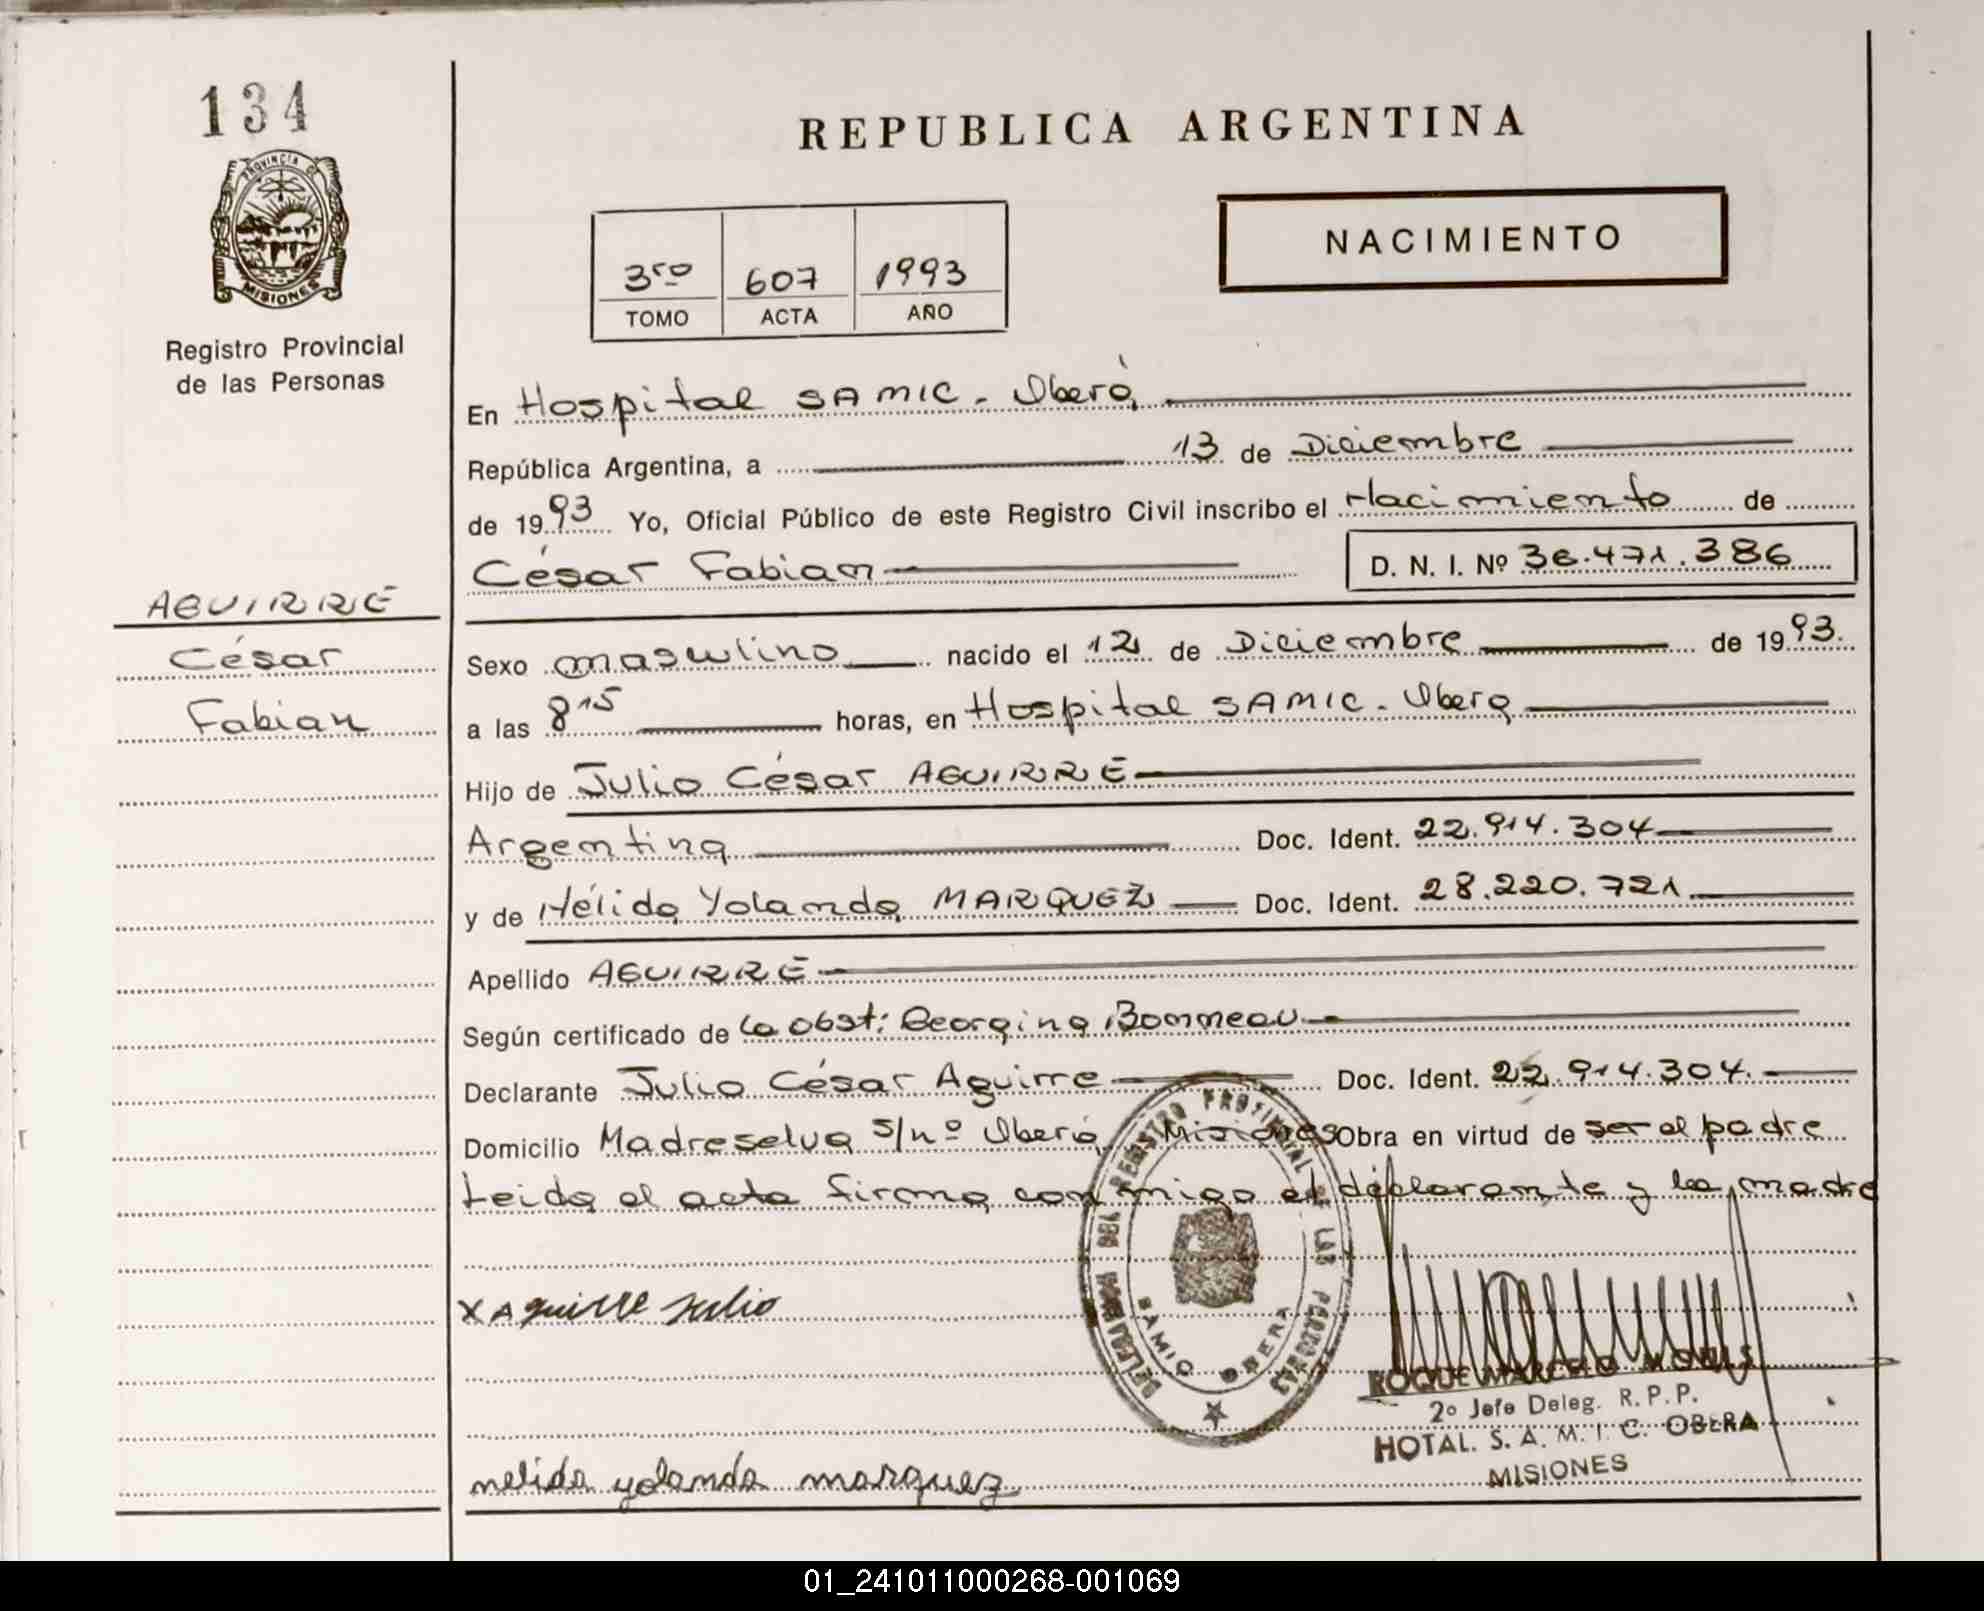 134
PROVINCIA DE
MISIONES
Registro Provincial
de las Personas
AGUIRRE
César
Fabian
REPUBLICA ARGENTINA
NACIMIENTO
3ro 607 1993
TOMO ACTA AÑO
En Hospital SAMIC - Oberá
República Argentina, a 13 de Diciembre
de 1993 Yo, Oficial Público de este Registro Civil inscribo el Nacimiento de
César Fabian D. N. I. Nº 36.471.386
Sexo masculino nacido el 12 de Diciembre de 1993.
a las 8 15 horas, en Hospital SAMIC - Obera
Hijo de Julio César AGUIRRE
Argentina Doc. Ident. 22.914.304
y de Nélida Yolanda MARQUEZ Doc. Ident. 28.220.721
Apellido AGUIRRE
Según certificado de la obst: Georgina Bonneau
Declarante Julio César Aguirre Doc. Ident. 22.914.304.
Domicilio Madreselva s/nº Oberá, Misiones Obra en virtud de ser el padre
Leida el acta firma conmigo el declarante y la madre
X Aguirre Julio
DEL REGISTRO PROVINCIAL DE LAS PERSONAS
SAMIC OBERA
ROQUE MARCELO
2º Jefe Deleg. R.P.P.
HOTAL. S. A. M. I. C. OBERA
MISIONES
nelida yolanda marquez
01_241011000268-001069